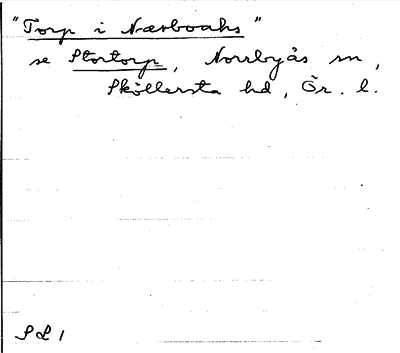 "Torp i Nærboahs"
se Stortorp, Norrbyås sn,
Sköllersta hd, Ör. l.
SL 1